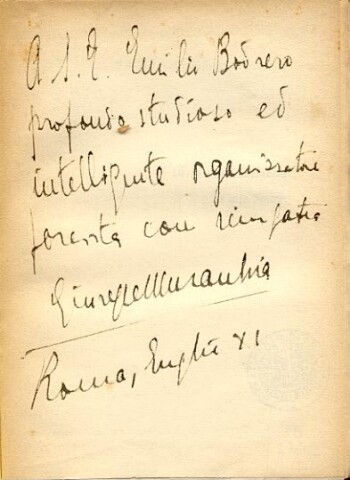 A S. E. Emilio Bodrero
profondo studioso ed
intelligente organizzatore
con simpatia
Giuseppe
Roma, Luglio